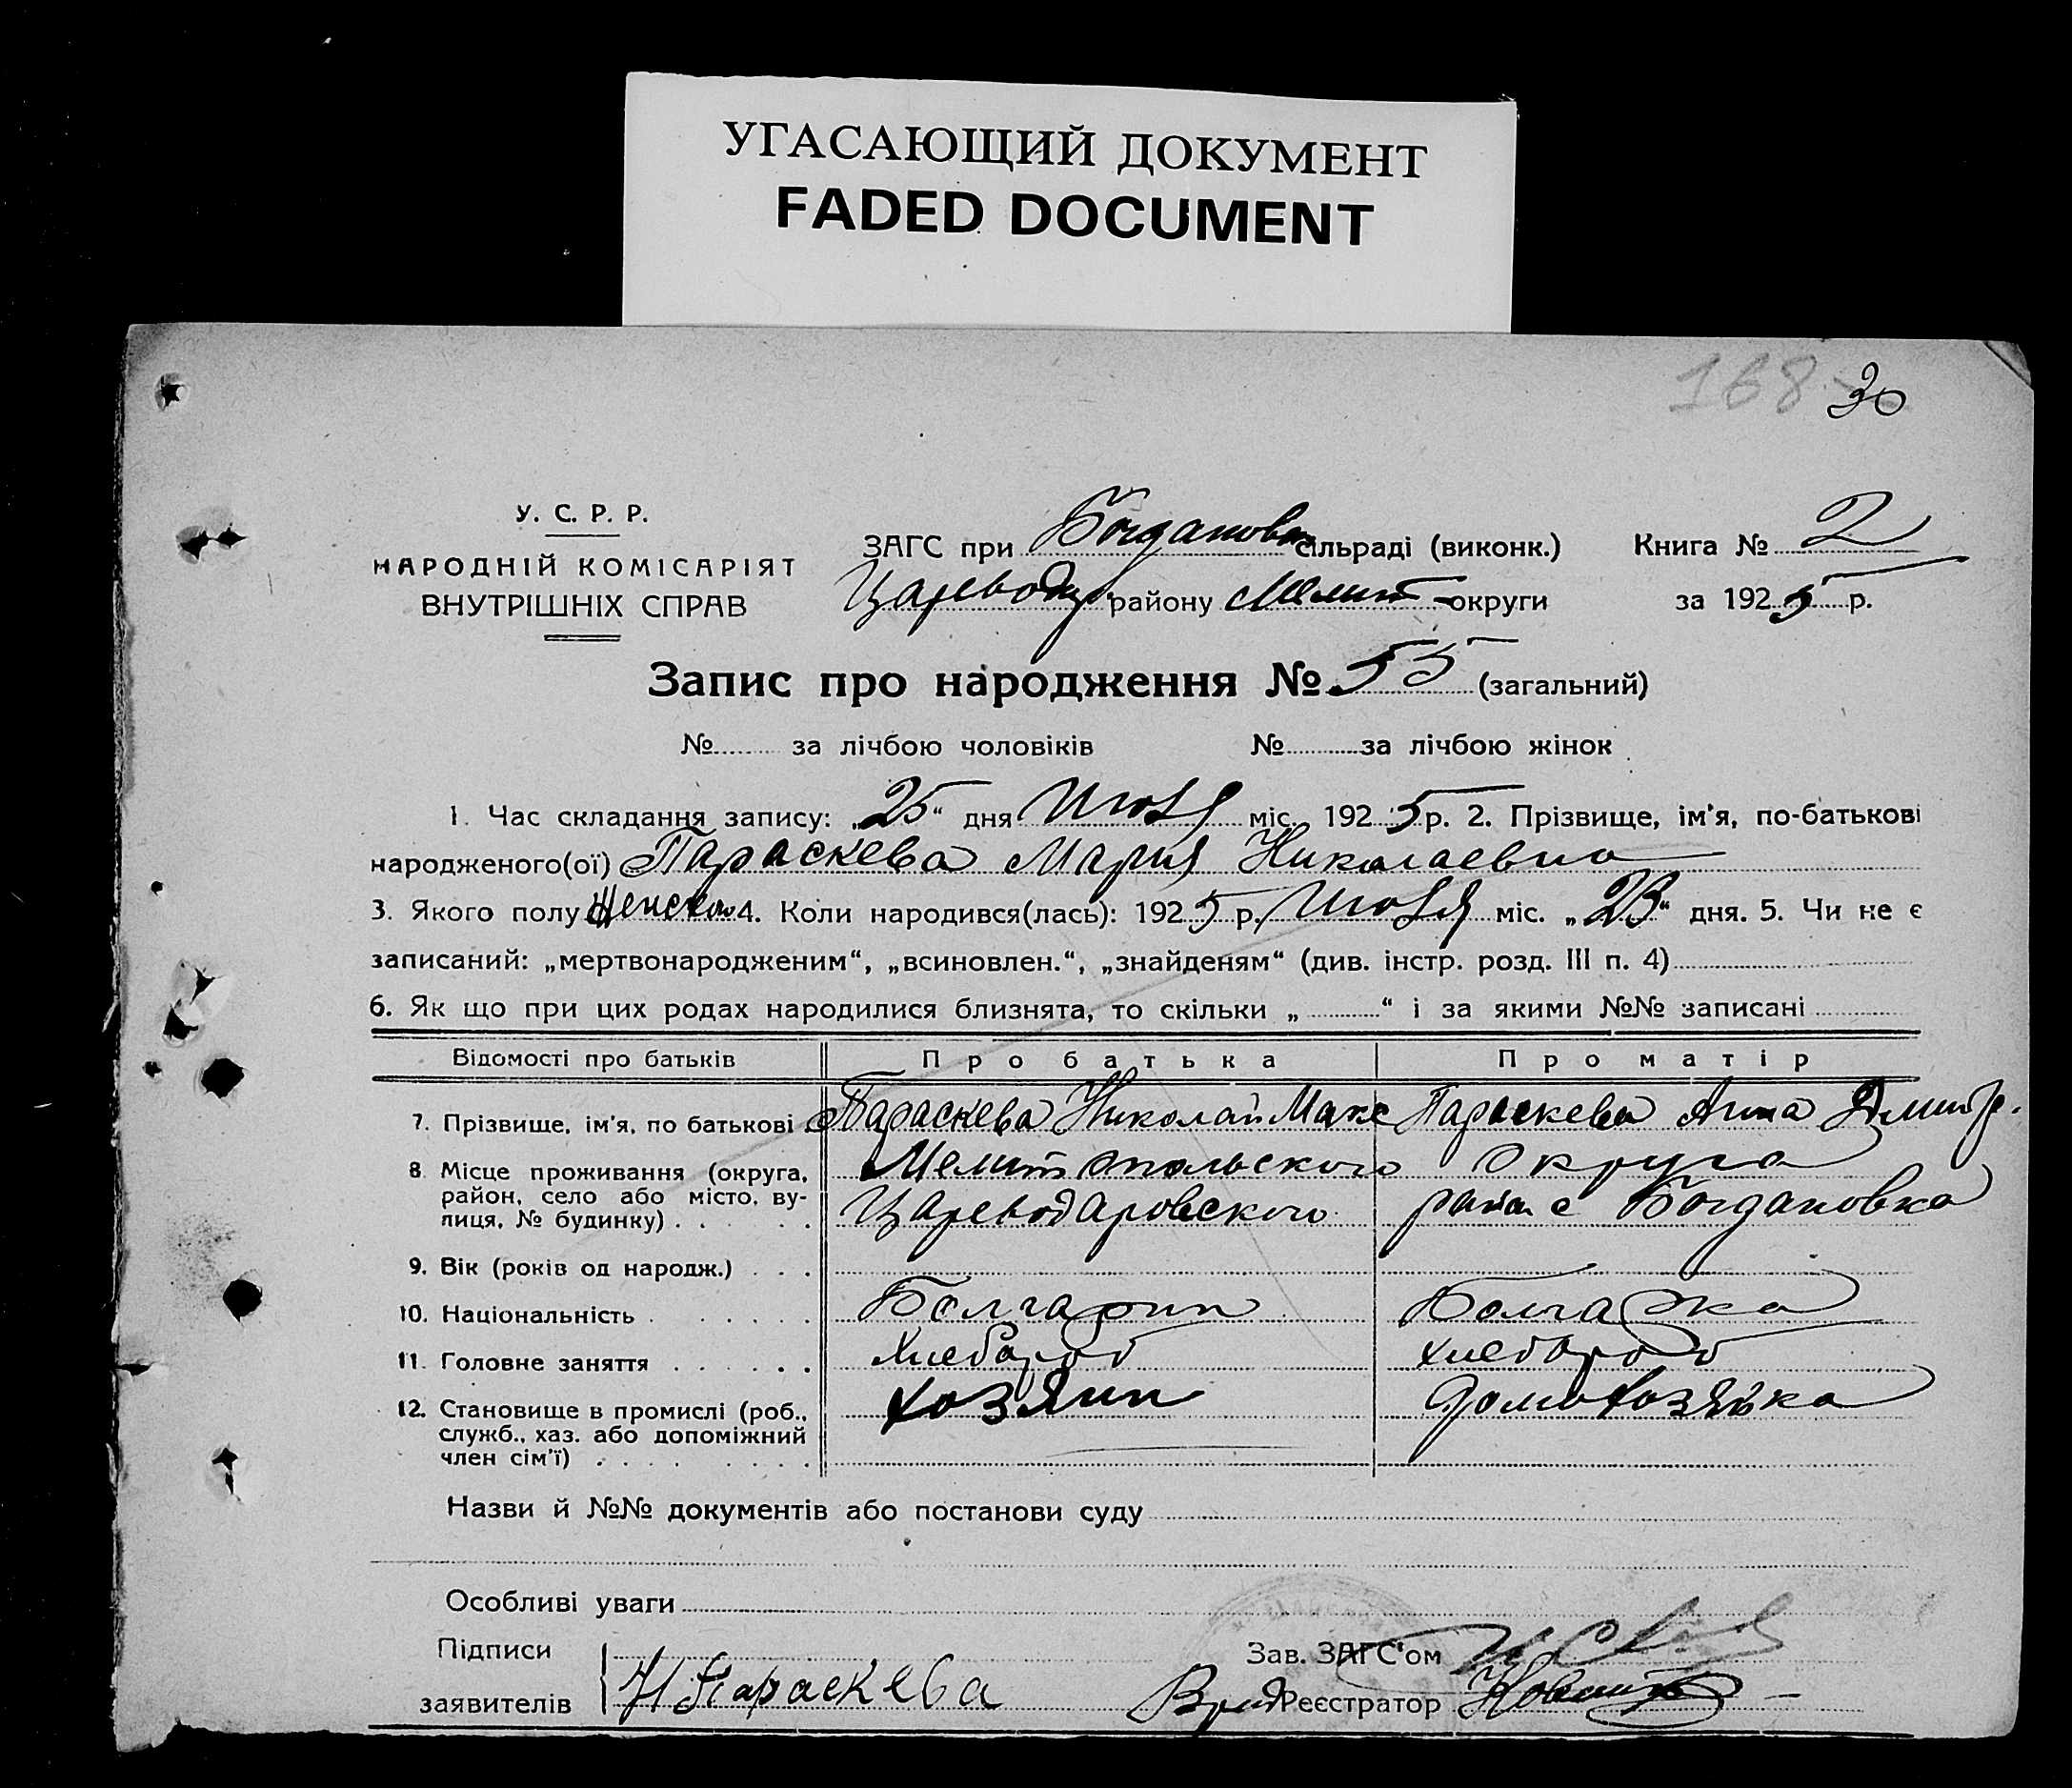 УГАСАЮЩИЙ ДОКУМЕНТ
FADED DOCUMENT
168 30
У. С. Р. Р.
НАРОДНІЙ КОМІСАРІЯТ
ВНУТРІШНІХ СПРАВ
ЗАГС при Богданов сільраді (виконк.) Книга № 2
Царевод. району Мелит округи за 1925 р.
Запис про народження № 55 (загальний)
№ за лічбою чоловіків № за лічбою жінок
1. Час складання запису: „25“ дня Июля міс. 1925 р. 2. Прізвище, ім'я, по-батькові
народженого(ої) Параскева Мария Николаевна
3. Якого полу Женскаго 4. Коли народився(лась): 1925 р. Июля міс. „23“ дня. 5. Чи не є
записаний: „мертвонародженим“, „всиновлен.“, „знайденям“ (див. інстр. розд. III п. 4)
6. Як що при цих родах народилися близнята, то скільки „ “ і за якими №№ записані
Відомості про батьків Про батька Про матір
7. Прізвище, ім'я, по батькові Параскева Николай Макс Параскева Анна Дмитр.
8. Місце проживання (округа, Мелитопольского Округа
район, село або місто, ву-
лиця, № будинку) Цареводаровского района с Богдановка
9. Вік (років од народж.)
10. Національність Болгарин Болгарка
11. Головне заняття Хлебороб хлебороб
12. Становище в промислі (роб., хозяин домохозяйка
служб., хаз. або допоміжний
член сім'ї)
Назви й №№ документів або постанови суду
Особливі уваги
Підписи Зав. ЗАГС'ом
заявителів Н Параскева Врид Реєстратор